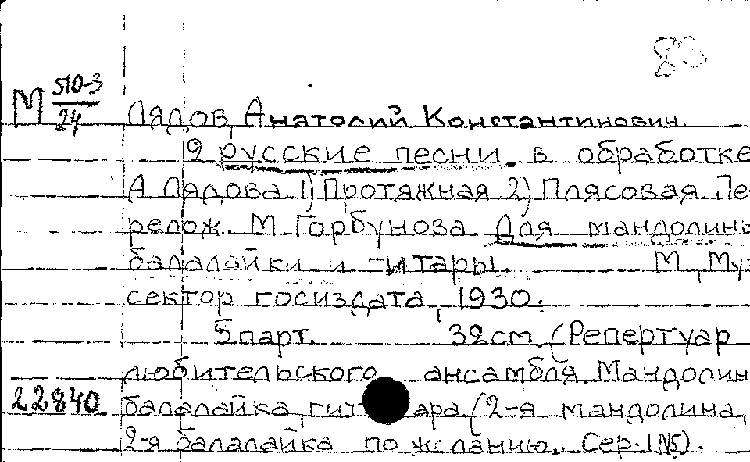 83
М 510-3/24 Лядов, Анатолий Константинович.
2 русские песни в обработке
А Лядова 1) Протяжная 2) Плясовая Пе
релож. М Горбунова Для мандолины
балалайки и гитары. М, Муз
сектор госиздата, 1930.
5 парт. 32см (Репертуар
любительского ансамбля Мандолин
22840 балалайка, гитара (2-я мандолина,
2-я балалайка по желанию. Сер. I №5).